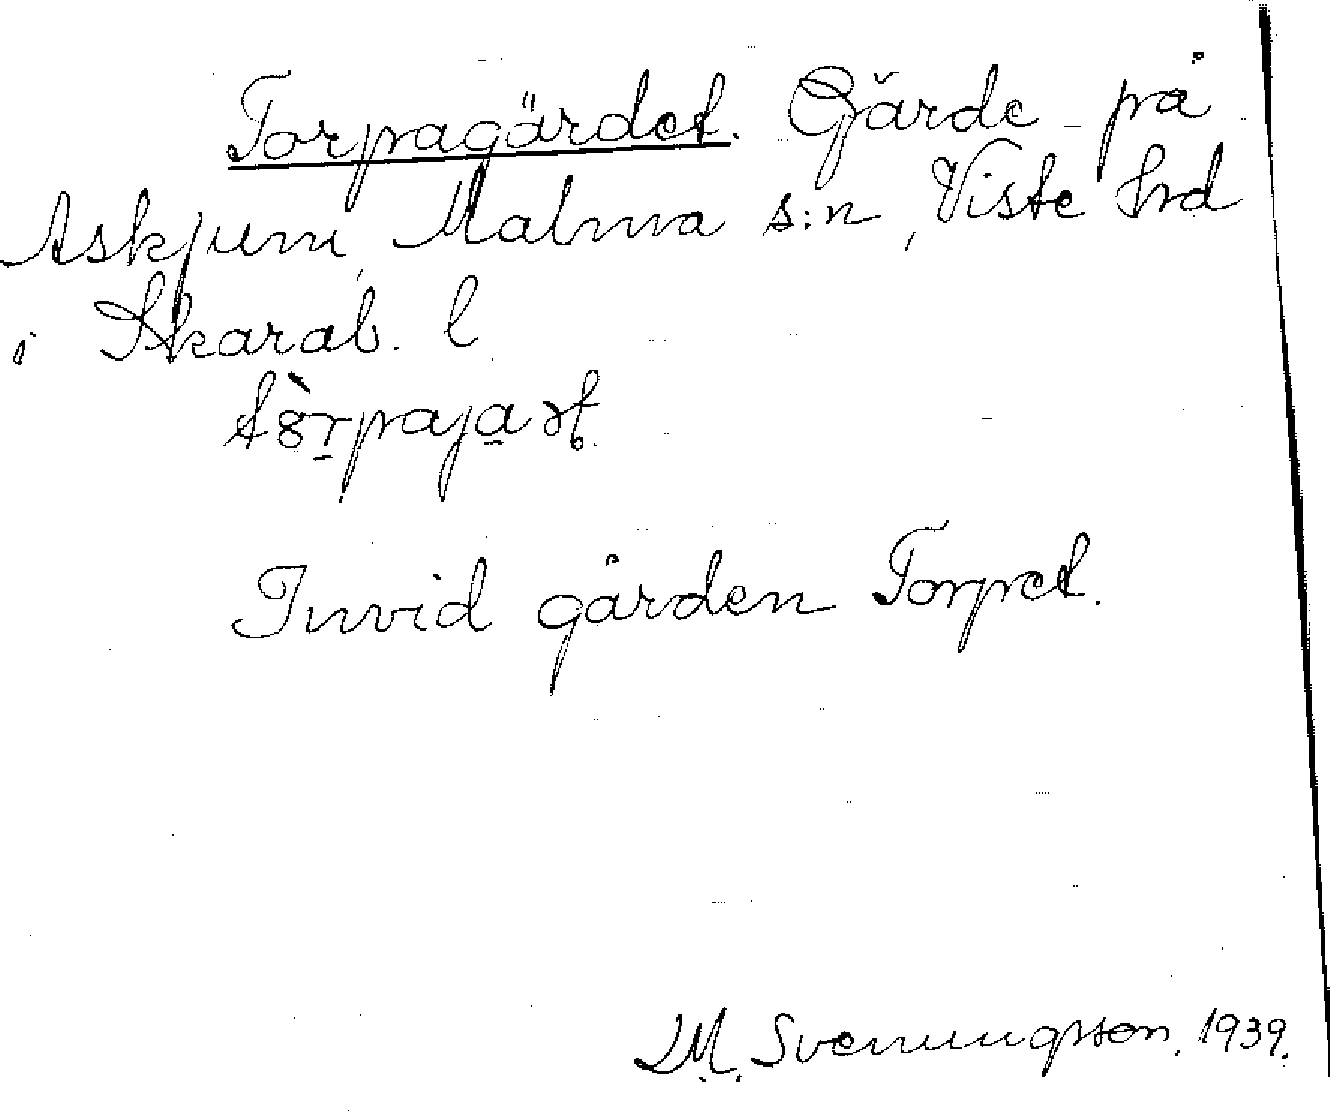 Torpagärdet. Gärde på
Askjum, Malma s:n, Viste hrd
i Skarab. l
Invid gården Torpet.
M. Svenungsson. 1939.